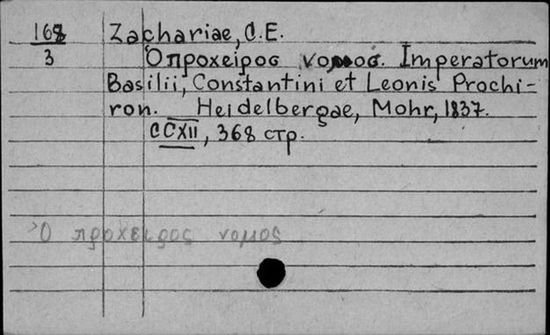 168 Zachariae, C.E.
3 Ὁπροχειρος νομος. Imperatorum
Basilii, Constantini et Leonis Prochi-
ron. Heidelbergae, Mohr, 1837.
CCXII, 368 стр.
Ὁ προχειρος νομος